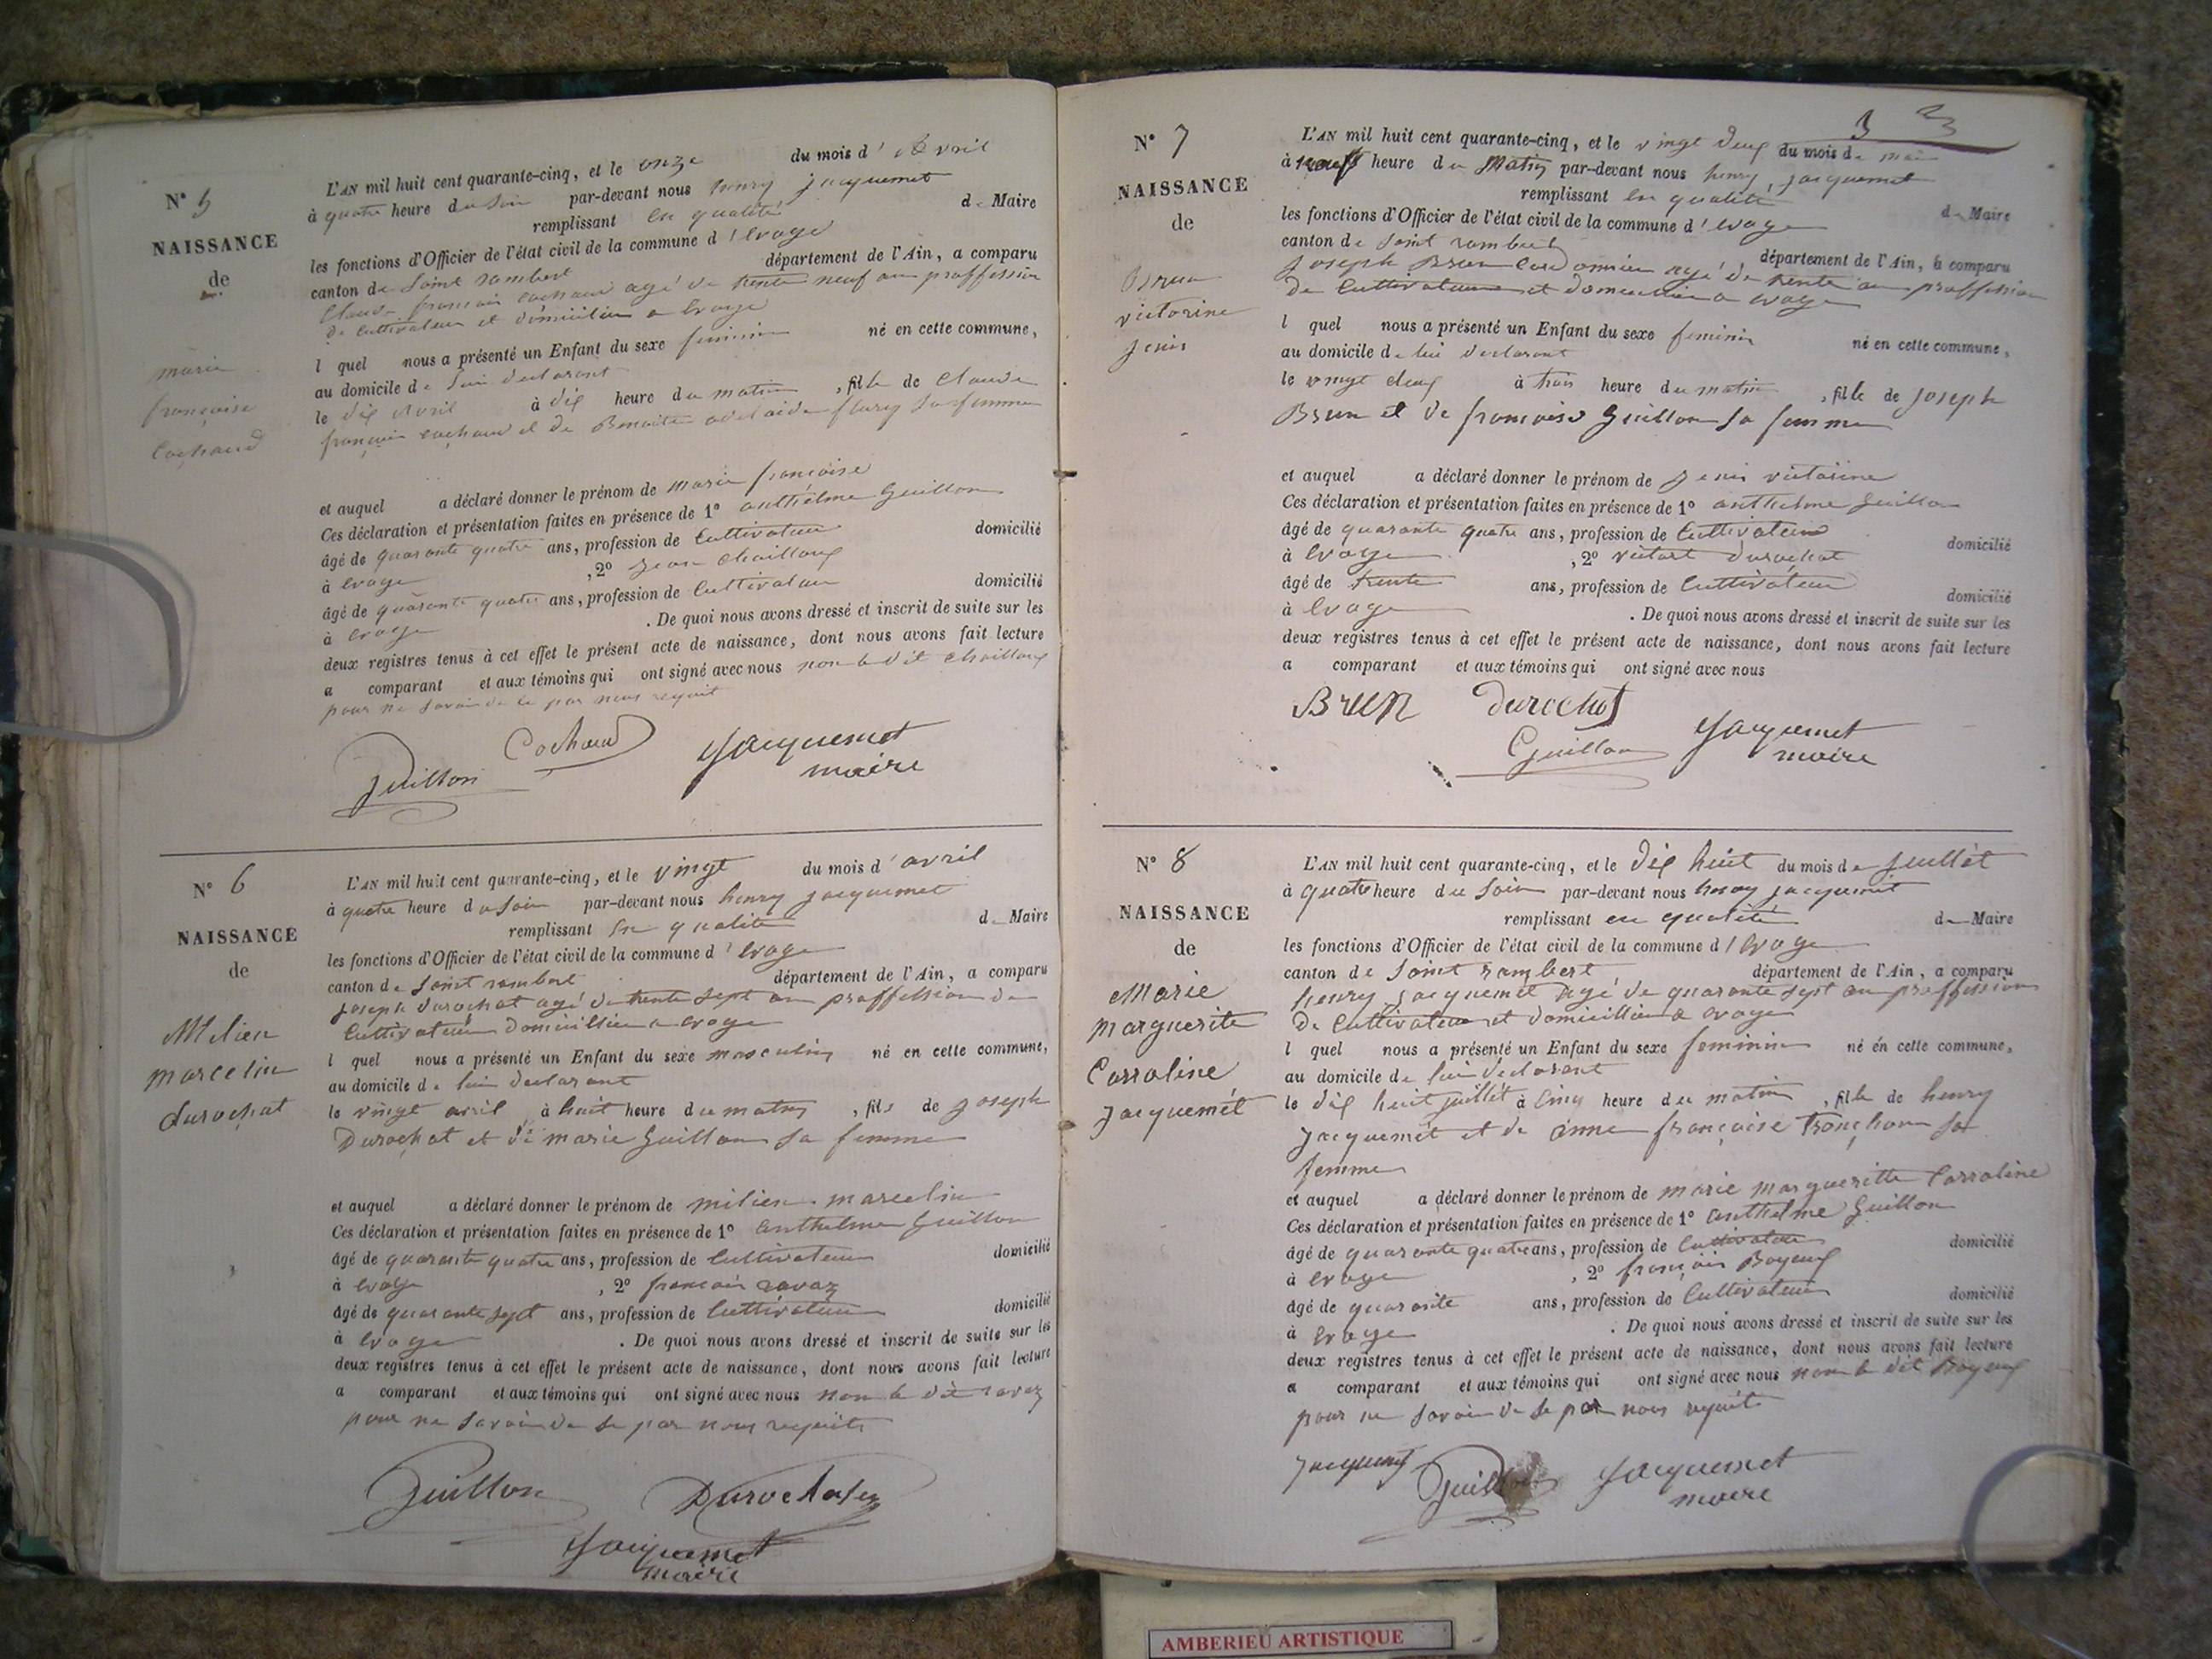 N° 5
NAISSANCE
de
marie
françoise
Cochaud
L'AN mil huit cent quarante-cinq, et le onze du mois d'Avril
à quatre heure du soir par-devant nous henry jacquemet
remplissant en qualité de Maire
les fonctions d'Officier de l'état civil de la commune d'Evoge
canton de Saint rambert département de l'Ain, a comparu
Claude françois Cochaud agé de trente neuf an proffession
de cultivateur et domicilier a Evoge
l quel nous a présenté un Enfant du sexe feminin né en cette commune,
au domicile de lui declarant
le dix Avril à dix heure du matin, fille de Claude
françois cochaud et de Benoite adelaide fleury sa femme
et auquel a déclaré donner le prénom de marie françoise
Ces déclaration et présentation faites en présence de 1° anthelme Guillon
âgé de quarante quatre ans, profession de Cultivateur domicilié
à Evoge, 2° jean Chailloux
âgé de quarante quatre ans, profession de Cultivateur domicilié
à Evoge. De quoi nous avons dressé et inscrit de suite sur les
deux registres tenus à cet effet le présent acte de naissance, dont nous avons fait lecture
a comparant et aux témoins qui ont signé avec nous non le dit Chailloux
pour ne savoir de ce par nous requit
Guillon Cochaud Jacquemet
maire
N° 6
NAISSANCE
de
Milien
marcelin
durochat
L'AN mil huit cent quarante-cinq, et le vingt du mois d'avril
à quatre heure du soir par-devant nous henry jacquemet
remplissant en qualité de Maire
les fonctions d'Officier de l'état civil de la commune d'Evoge
canton de Saint rambert département de l'Ain, a comparu
joseph durochat agé de trente sept an proffession de
Cultivateur domicillier a evoge
l quel nous a présenté un Enfant du sexe masculin né en cette commune,
au domicile de lui declarant
le vingt avril à huit heure du matin, fils de joseph
Durochat et de marie Guillon sa femme
et auquel a déclaré donner le prénom de milien marcelin
Ces déclaration et présentation faites en présence de 1° anthelme Guillon
âgé de quarante quatre ans, profession de Cultivateur domicilié
à Evoge, 2° françois ravaz
âgé de quarante sept ans, profession de Cultivateur domicilié
à Evoge. De quoi nous avons dressé et inscrit de suite sur les
deux registres tenus à cet effet le présent acte de naissance, dont nous avons fait lecture
a comparant et aux témoins qui ont signé avec nous non le dit ravaz
pour ne savoir de se par nous requits
Guillon
Jacquemet
maire
3 3
N° 7
NAISSANCE
de
Brun
victorine
jenis
L'AN mil huit cent quarante-cinq, et le vingt deux du mois de mai
à neuf heure du Matin par-devant nous henry jacquemet
remplissant en qualité de Maire
les fonctions d'Officier de l'état civil de la commune d'evoge
canton de Saint rambert département de l'Ain, a comparu
joseph Brun Cordonnier agé de trente an proffession
de Cultivateur et domicilier a evoge
l quel nous a présenté un Enfant du sexe feminin né en cette commune,
au domicile de lui declarant
le vingt deux à trois heure du matin, fille de joseph
Brun et de françoise Guillon sa femme
et auquel a déclaré donner le prénom de jenis victorine
Ces déclaration et présentation faites en présence de 1° anthelme Guillon
âgé de quarante quatre ans, profession de Cultivateur domicilié
à Evoge, 2° victort durochat
âgé de trente ans, profession de Cultivateur domicilié
à Evoge. De quoi nous avons dressé et inscrit de suite sur les
deux registres tenus à cet effet le présent acte de naissance, dont nous avons fait lecture
a comparant et aux témoins qui ont signé avec nous
Brun durochat
Guillon Jacquemet
maire
N° 8
NAISSANCE
de
Marie
Marguerite
Carroline
Jacquemét
L'AN mil huit cent quarante-cinq, et le dix huit du mois de juillet
à quatre heure du soir par-devant nous henry jacquemet
remplissant en qualité de Maire
les fonctions d'Officier de l'état civil de la commune d'Evoge
canton de Saint rambert département de l'Ain, a comparu
henry jacquemet agé de quarante sept an proffession
de Cultivateur et domicillier a evoge
l quel nous a présenté un Enfant du sexe feminin né en cette commune,
au domicile de lui declarent
le dix huit juillet à cinq heure du matin, fille de henry
jacquemét et de anne françoise Tronchon sa
femme
et auquel a déclaré donner le prénom de marie margueritte Carroline
Ces déclaration et présentation faites en présence de 1° anthelme Guillon
âgé de quarante quatre ans, profession de Cultivateur domicilié
à Evoge, 2° françois Boyeux
âgé de quarante ans, profession de Cultivateur domicilié
à Evoge. De quoi nous avons dressé et inscrit de suite sur les
deux registres tenus à cet effet le présent acte de naissance, dont nous avons fait lecture
a comparant et aux témoins qui ont signé avec nous non le dit Boyeux
pour ne savoir de se par nous requits
jacquemet Guillon Jacquemet
maire
AMBERIEU ARTISTIQUE